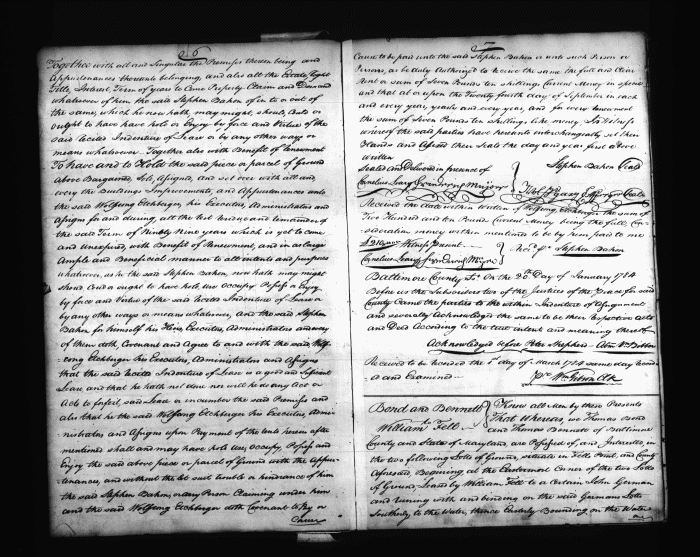 56
Together with all and Singular the Premises therein being and
Appurtenances thereunto belonging, and also all the Estate, Right
Title, Interest, Term of years to Come Property Claim and Demand
whatsoever of him the said Stephen Bahon of in to or out of
the same, which he now hath, may might, should, Could or
ought to have have hold or Enjoy by face and Virtue of the
said recited Indenture of Lease or by any other ways or
means whatsoever. Together also with Benefit of Renewment
To have and to Hold the said piece or parcel of Ground
above Bargained Sold, Assigned, and set over with all and
every the Buildings Improvements, and Appurtenances unto
the said Wolfgang Etchberger his Executors, Administrators and
Assigns for and during, all the rest residue and remainder of
the said Term of Ninety Nine years which is yet to come
and unexpired, with Benefit of Renewment, and in as large
Ample and Beneficial manner to all intents and purposes
whatsoever, as he the said Stephen Bahon, now hath may might
should Could or ought to have hold use Occupy, Possess or Enjoy
by face and Virtue of the said recited Indenture of Lease or
by any other ways or means whatsoever, and the said Stephen
Bahon for himself his Heirs, Executors, Administrators and every
of them doth, Covenant and Agree to and with the said Wolf-
gang Etchberger his Executors, Administrators and Assigns
that the said recited Indenture of Lease is a good and Sufficient
Lease and that he hath not done nor will he do any Act or
Acts to forfeit, said Lease or incumber the said Premises and
also that he the said Wolfgang Etchberger his Executors, Admi-
nistrators and Assigns upon Payment of the Rents herein after
mentioned shall and may have hold use, occupy, Possess and
Enjoy the said above piece or parcel of Ground with the Appur-
tenances, and without the let suit trouble or hinderance of him
the said Stephen Bahon, or any Person Claiming under him
and the said Wolfgang Etchberger doth Covenant to Pay or
Cause
Cause to be paid unto the said Stephen Bahon or unto such Person or
Persons, as be duly Authorized to receive the same the full and Clear
Rent or sum of Seven Pounds ten shillings, Current Money in specie
and that at or upon the Twenty fourth day of September in each
and every year, yearly and every year, and for every renewment
the sum of Seven Pounds ten shillings, like money. In Witness
whereof the said parties have hereunto interchangeably set their
Hands and Affixed their Seals the day and year first above
written
Sealed and Delivered in presence of Stephen Bahon (Seal)
Received the date within written of Wolfgang Etchberger the sum of
Two Hundred and ten Pound Current Money being the full Con-
sideration money within mentioned to be by him paid to me
Stephen Bahon
Baltimore County On the 20 Day of January 1784
Before us the Subscribers two of the Justices of the Peace for said
County Came the parties to the within Indenture of Assignment
and severally Acknowledged the same to be their respective Acts
and Deed According to the true intent and meaning thereof
Acknowledged before Peter Shepherd
Received to be recorded the 1st day of March 1784 same day recorded
and Examined
Wm Gibson Clk
Bond and Bennett Know all Men by these Presents
William Fell That Whereas we Thomas Bond
and Thomas Bennett of Baltimore
County and State of Maryland, are Possessed of, and Interested, in
the two following Lotts of Ground, situate in Fells Point, and County
Aforesaid, Beginning at the Easternmost Corner of the two Lotts
of Ground, Leased by William Fell to a Certain John German
and running with and binding on the said Germans Lotts
Southerly to the Water, thence Easterly Bounding on the Water